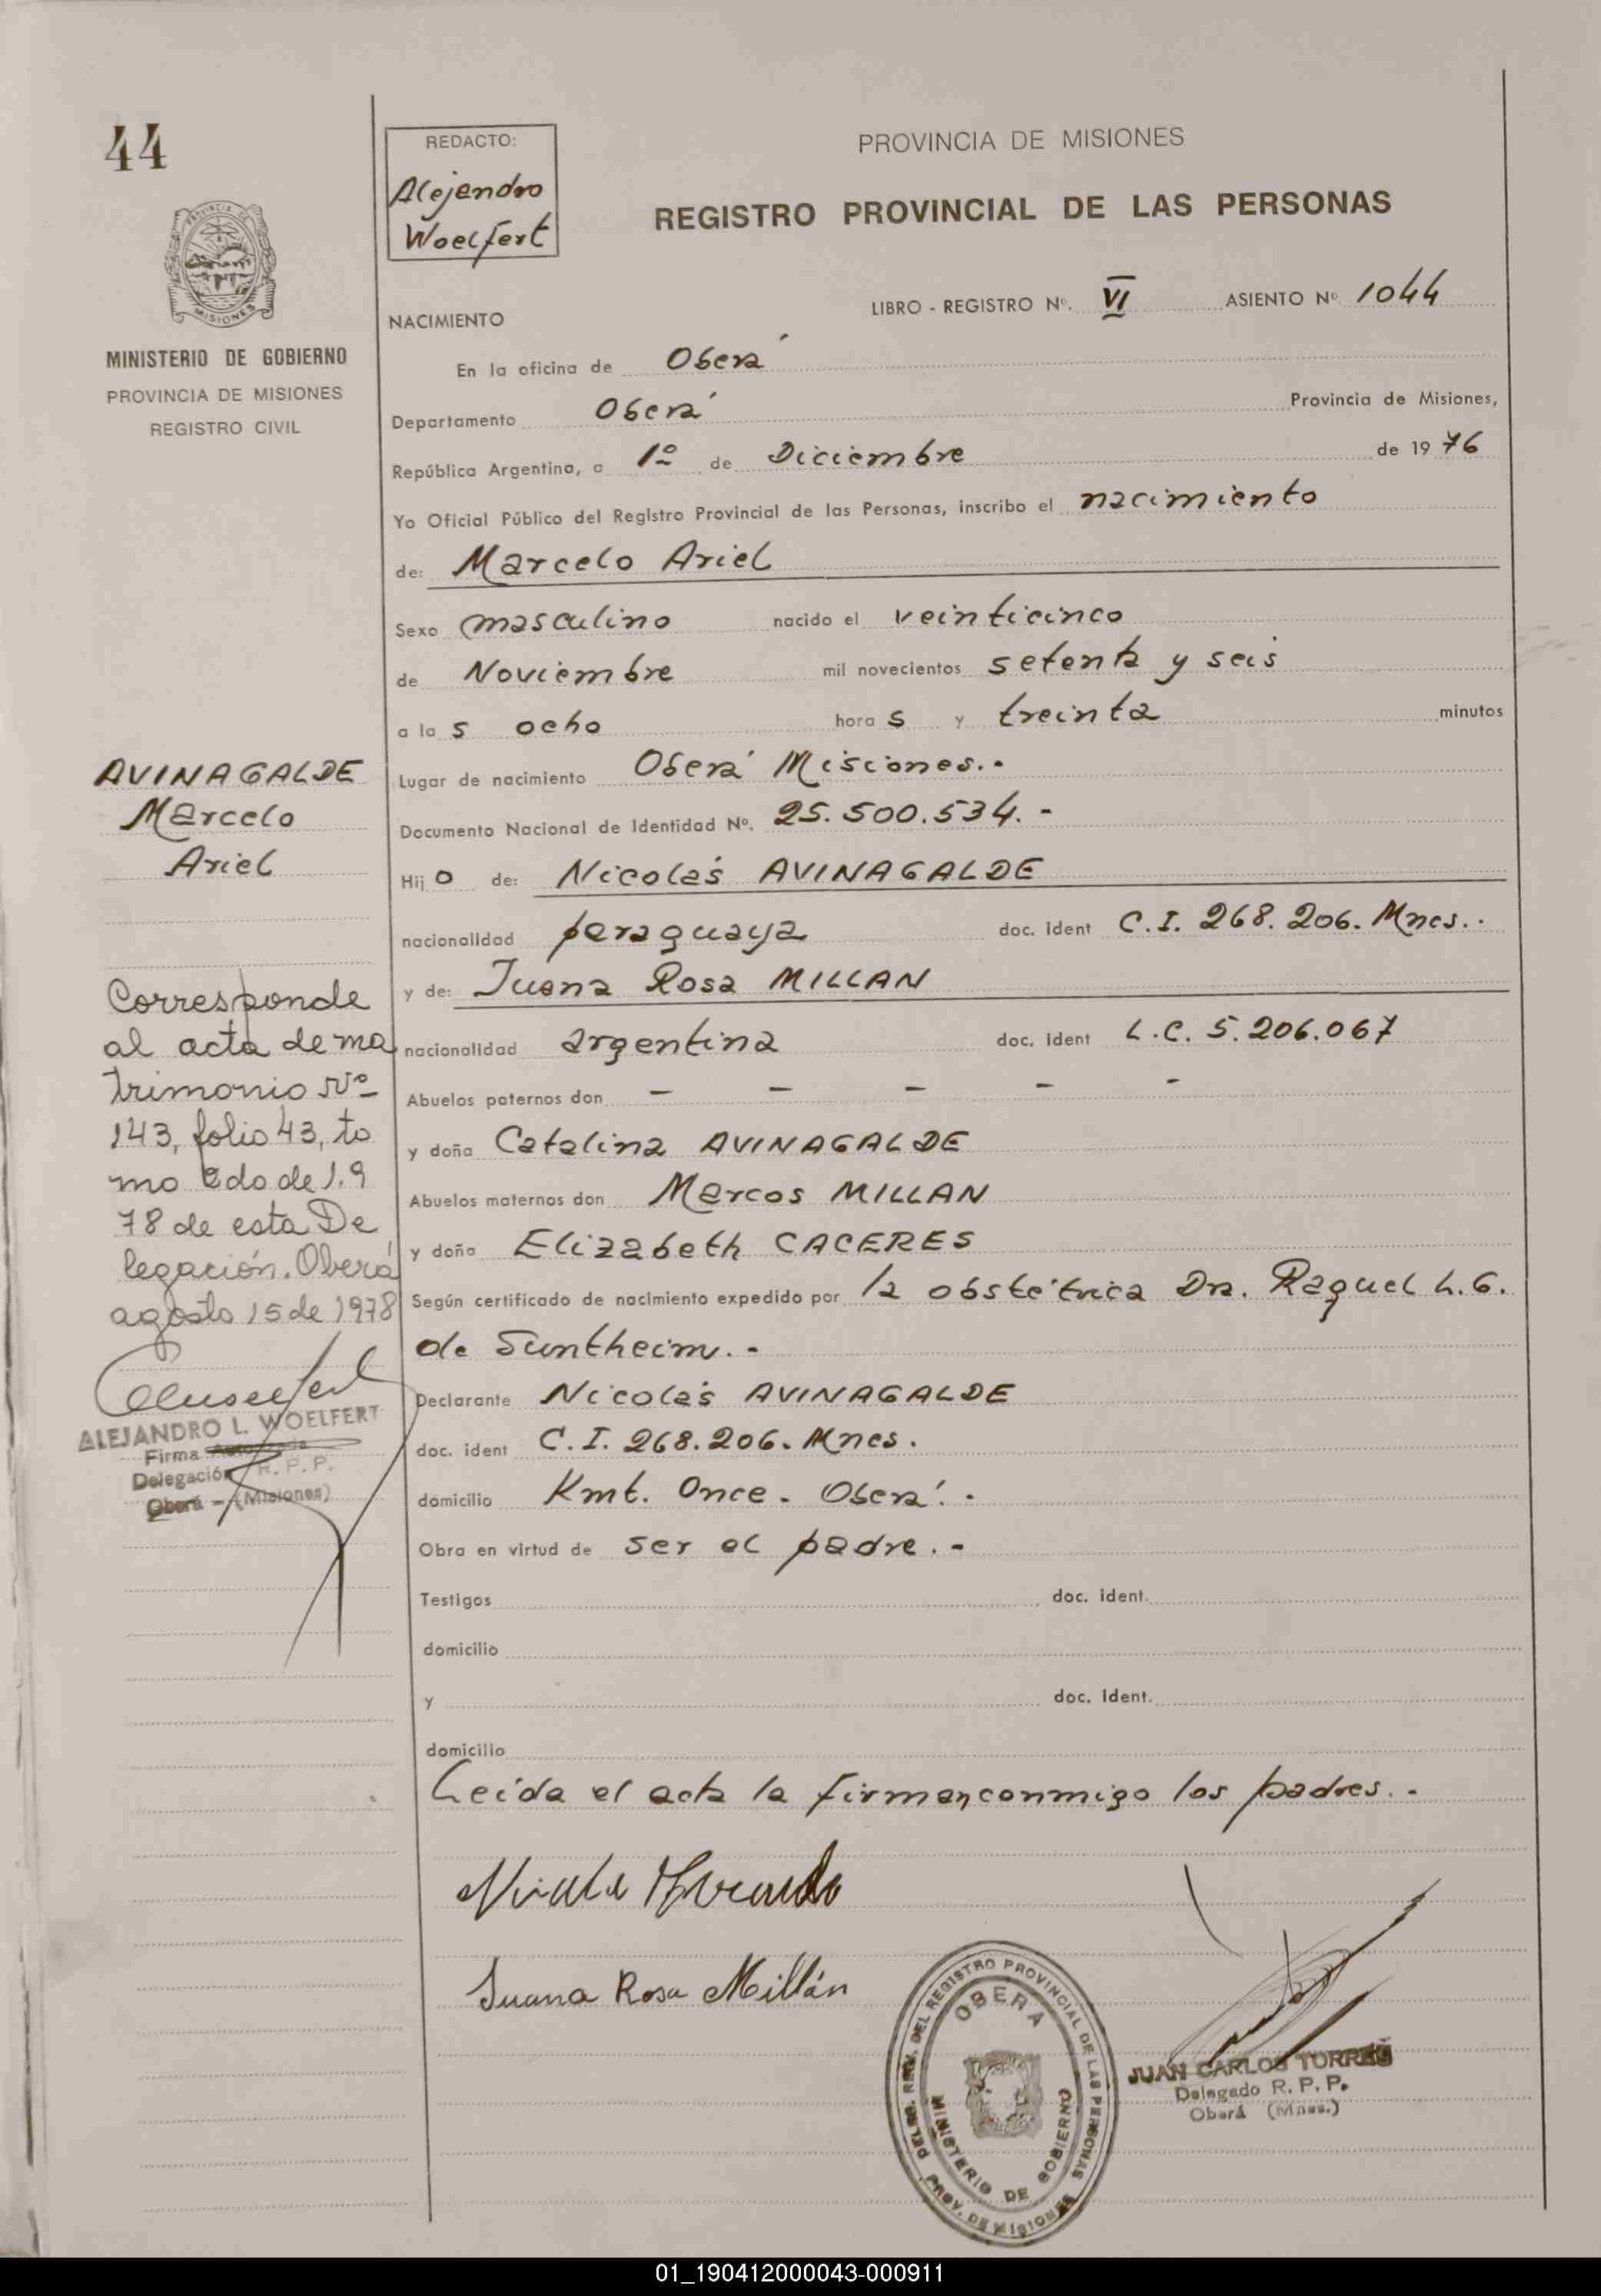 44
REDACTO:
Alejandro
Woelfert
PROVINCIA DE MISIONES
REGISTRO PROVINCIAL DE LAS PERSONAS
MISIONES
MINISTERIO DE GOBIERNO
PROVINCIA DE MISIONES
REGISTRO CIVIL
LIBRO - REGISTRO Nº. VI ASIENTO Nº 1044
NACIMIENTO
En la oficina de Oberá
Departamento Oberá Provincia de Misiones,
República Argentina, a 1º de Diciembre de 1976
Yo Oficial Público del Registro Provincial de las Personas, inscribo el nacimiento
de: Marcelo Ariel
Sexo masculino nacido el veinticinco
de Noviembre mil novecientos setenta y seis
a la s ocho hora s y treinta minutos
Lugar de nacimiento Oberá Misiones.-
Documento Nacional de Identidad Nº. 25.500.534.-
Hij o de: Nicolás AVINAGALDE
nacionalidad paraguaya doc. ident C.I. 268.206. Mnes..
y de: Juana Rosa MILLAN
nacionalidad argentina doc. ident L.C. 5.206.067
Abuelos paternos don - - - - -
y doña Catalina AVINAGALDE
Abuelos maternos don Marcos MILLAN
y doña Elizabeth CACERES
Según certificado de nacimiento expedido por la obstétrica Dra. Raquel L.G.
de Suntheim.-
Declarante Nicolás AVINAGALDE
doc. ident C.I. 268.206. Mnes.
domicilio Kmt. Once. Oberá.-
Obra en virtud de ser el padre.-
Testigos doc. ident.
domicilio
y doc. ident.
domicilio
Leída el acta la firman conmigo los padres.-
Juana Rosa Millán
AVINAGALDE
Marcelo
Ariel
Corresponde
al acta de ma
trimonio Nº
143, folio 43, to
mo 2do de 1.9
78 de esta De
legación. Oberá
agosto 15 de 1978
ALEJANDRO L. WOELFERT
Firma Autorizada
Delegación R. P. P.
Oberá - (Misiones)
DELEG. REM. DEL REGISTRO PROVINCIAL DE LAS PERSONAS
OBERA
MINISTERIO DE GOBIERNO
PROV. DE MISIONES
JUAN CARLOS TORRES
Delegado R. P. P.
Oberá (Mnes.)
01_190412000043-000911